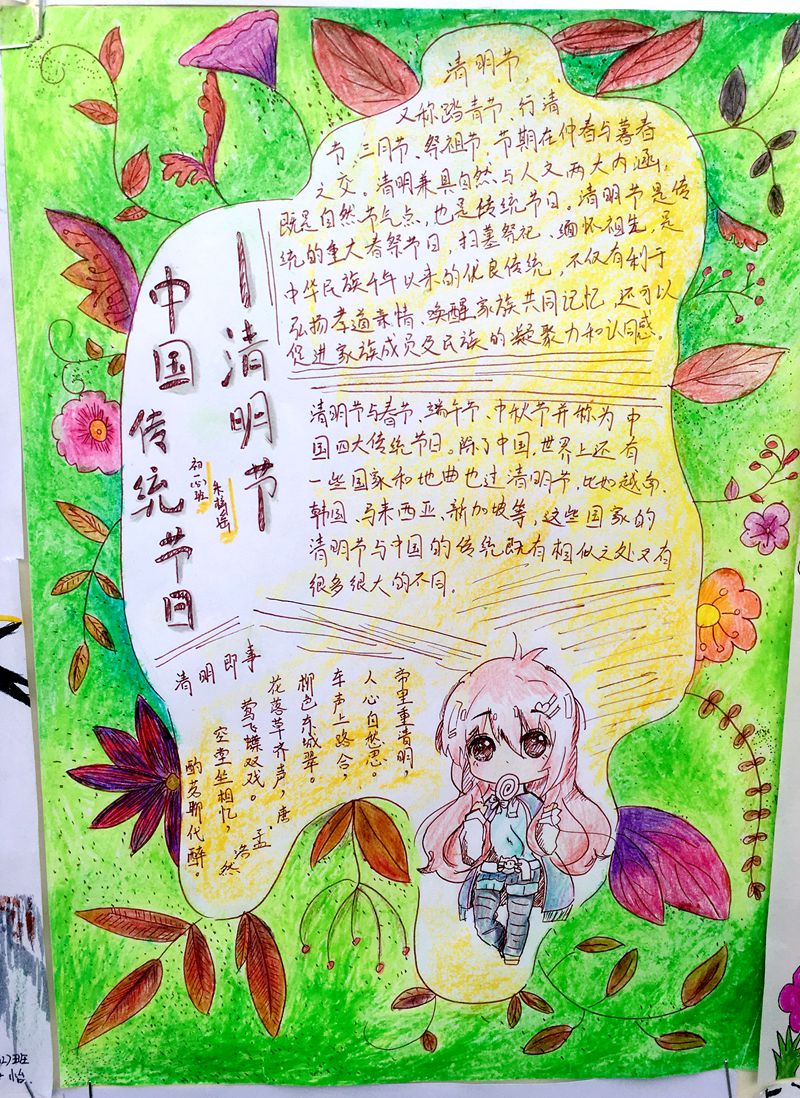 中国传统节日
——清明节
初一(5)班
清明节
又称踏青节、行清
节、三月节、祭祖节,节期在仲春与暮春
之交。清明兼具自然与人文两大内涵,
既是自然节气点,也是传统节日。清明节是传
统的重大春祭节日,扫墓祭祀、缅怀祖先,是
中华民族千年以来的优良传统,不仅有利于
弘扬孝道亲情、唤醒家族共同记忆,还可以
促进家族成员及民族的凝聚力和认同感。
清明节与春节、端午节、中秋节并称为中
国四大传统节日。除了中国,世界上还有
一些国家和地曲也过清明节,比如越南、
韩国、马来西亚、新加坡等,这些国家的
清明节与中国的传统既有相似之处又有
很多很大的不同。
清明即事
帝里重清明,
人心自愁思。
车声上路合,
柳色东城翠。
花落草齐声,唐.孟浩然
莺飞蝶双戏。
空堂坐相忆,
酌茗聊代醉。
2)班
怡